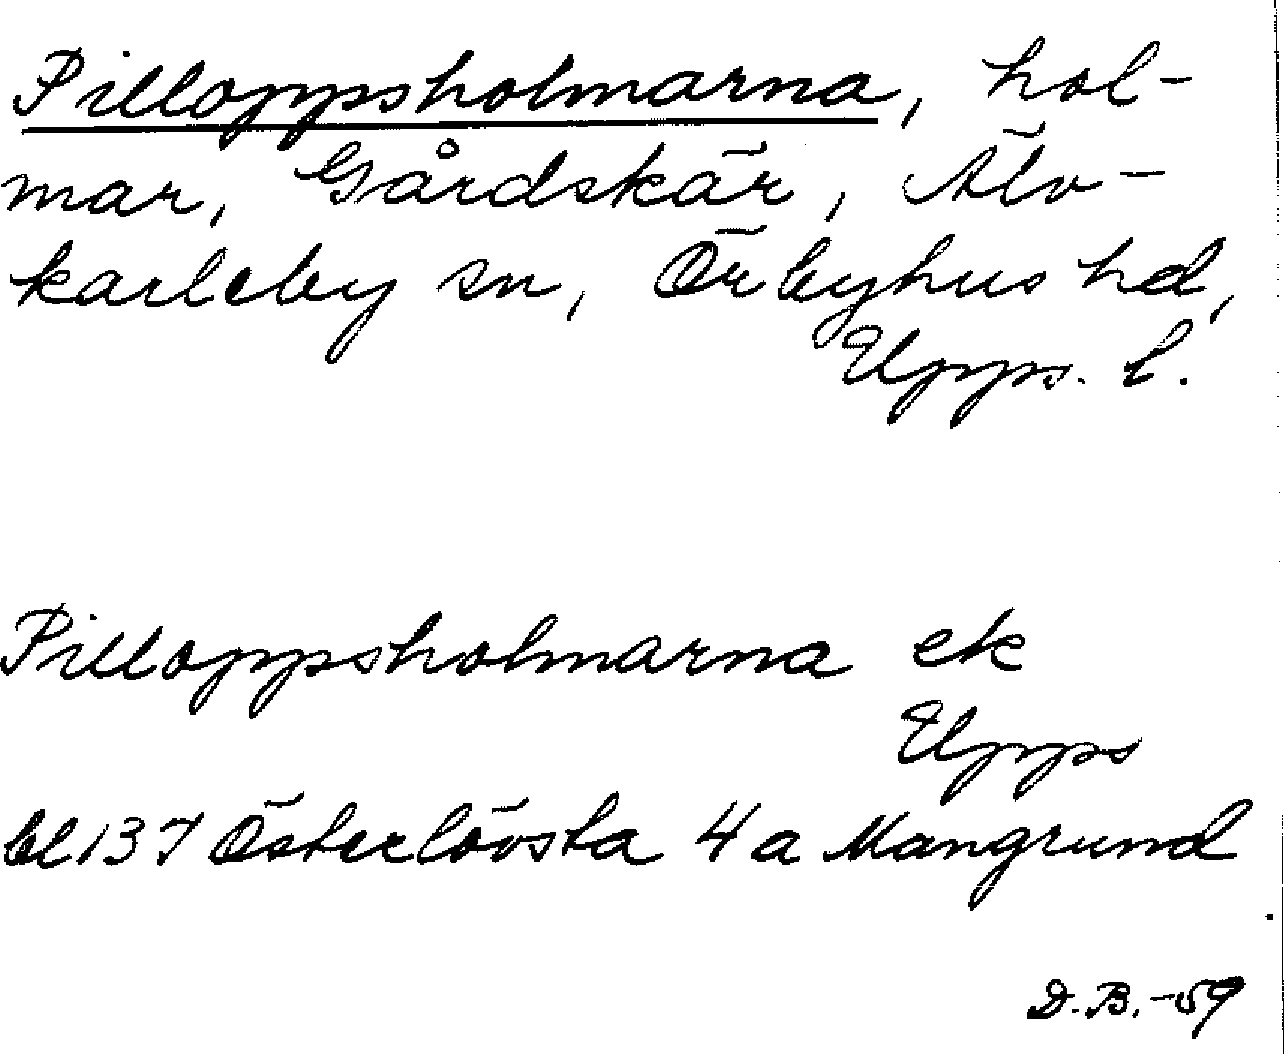 Pilloppsholmarna, hol-
mar, Gårdskär, Älv-
karleby sn, Örbyhus hd,
Upps. l.
Pilloppsholmarna ek
Upps
bl 137 Österlövsta 4 a Mangrund
D.B.-59